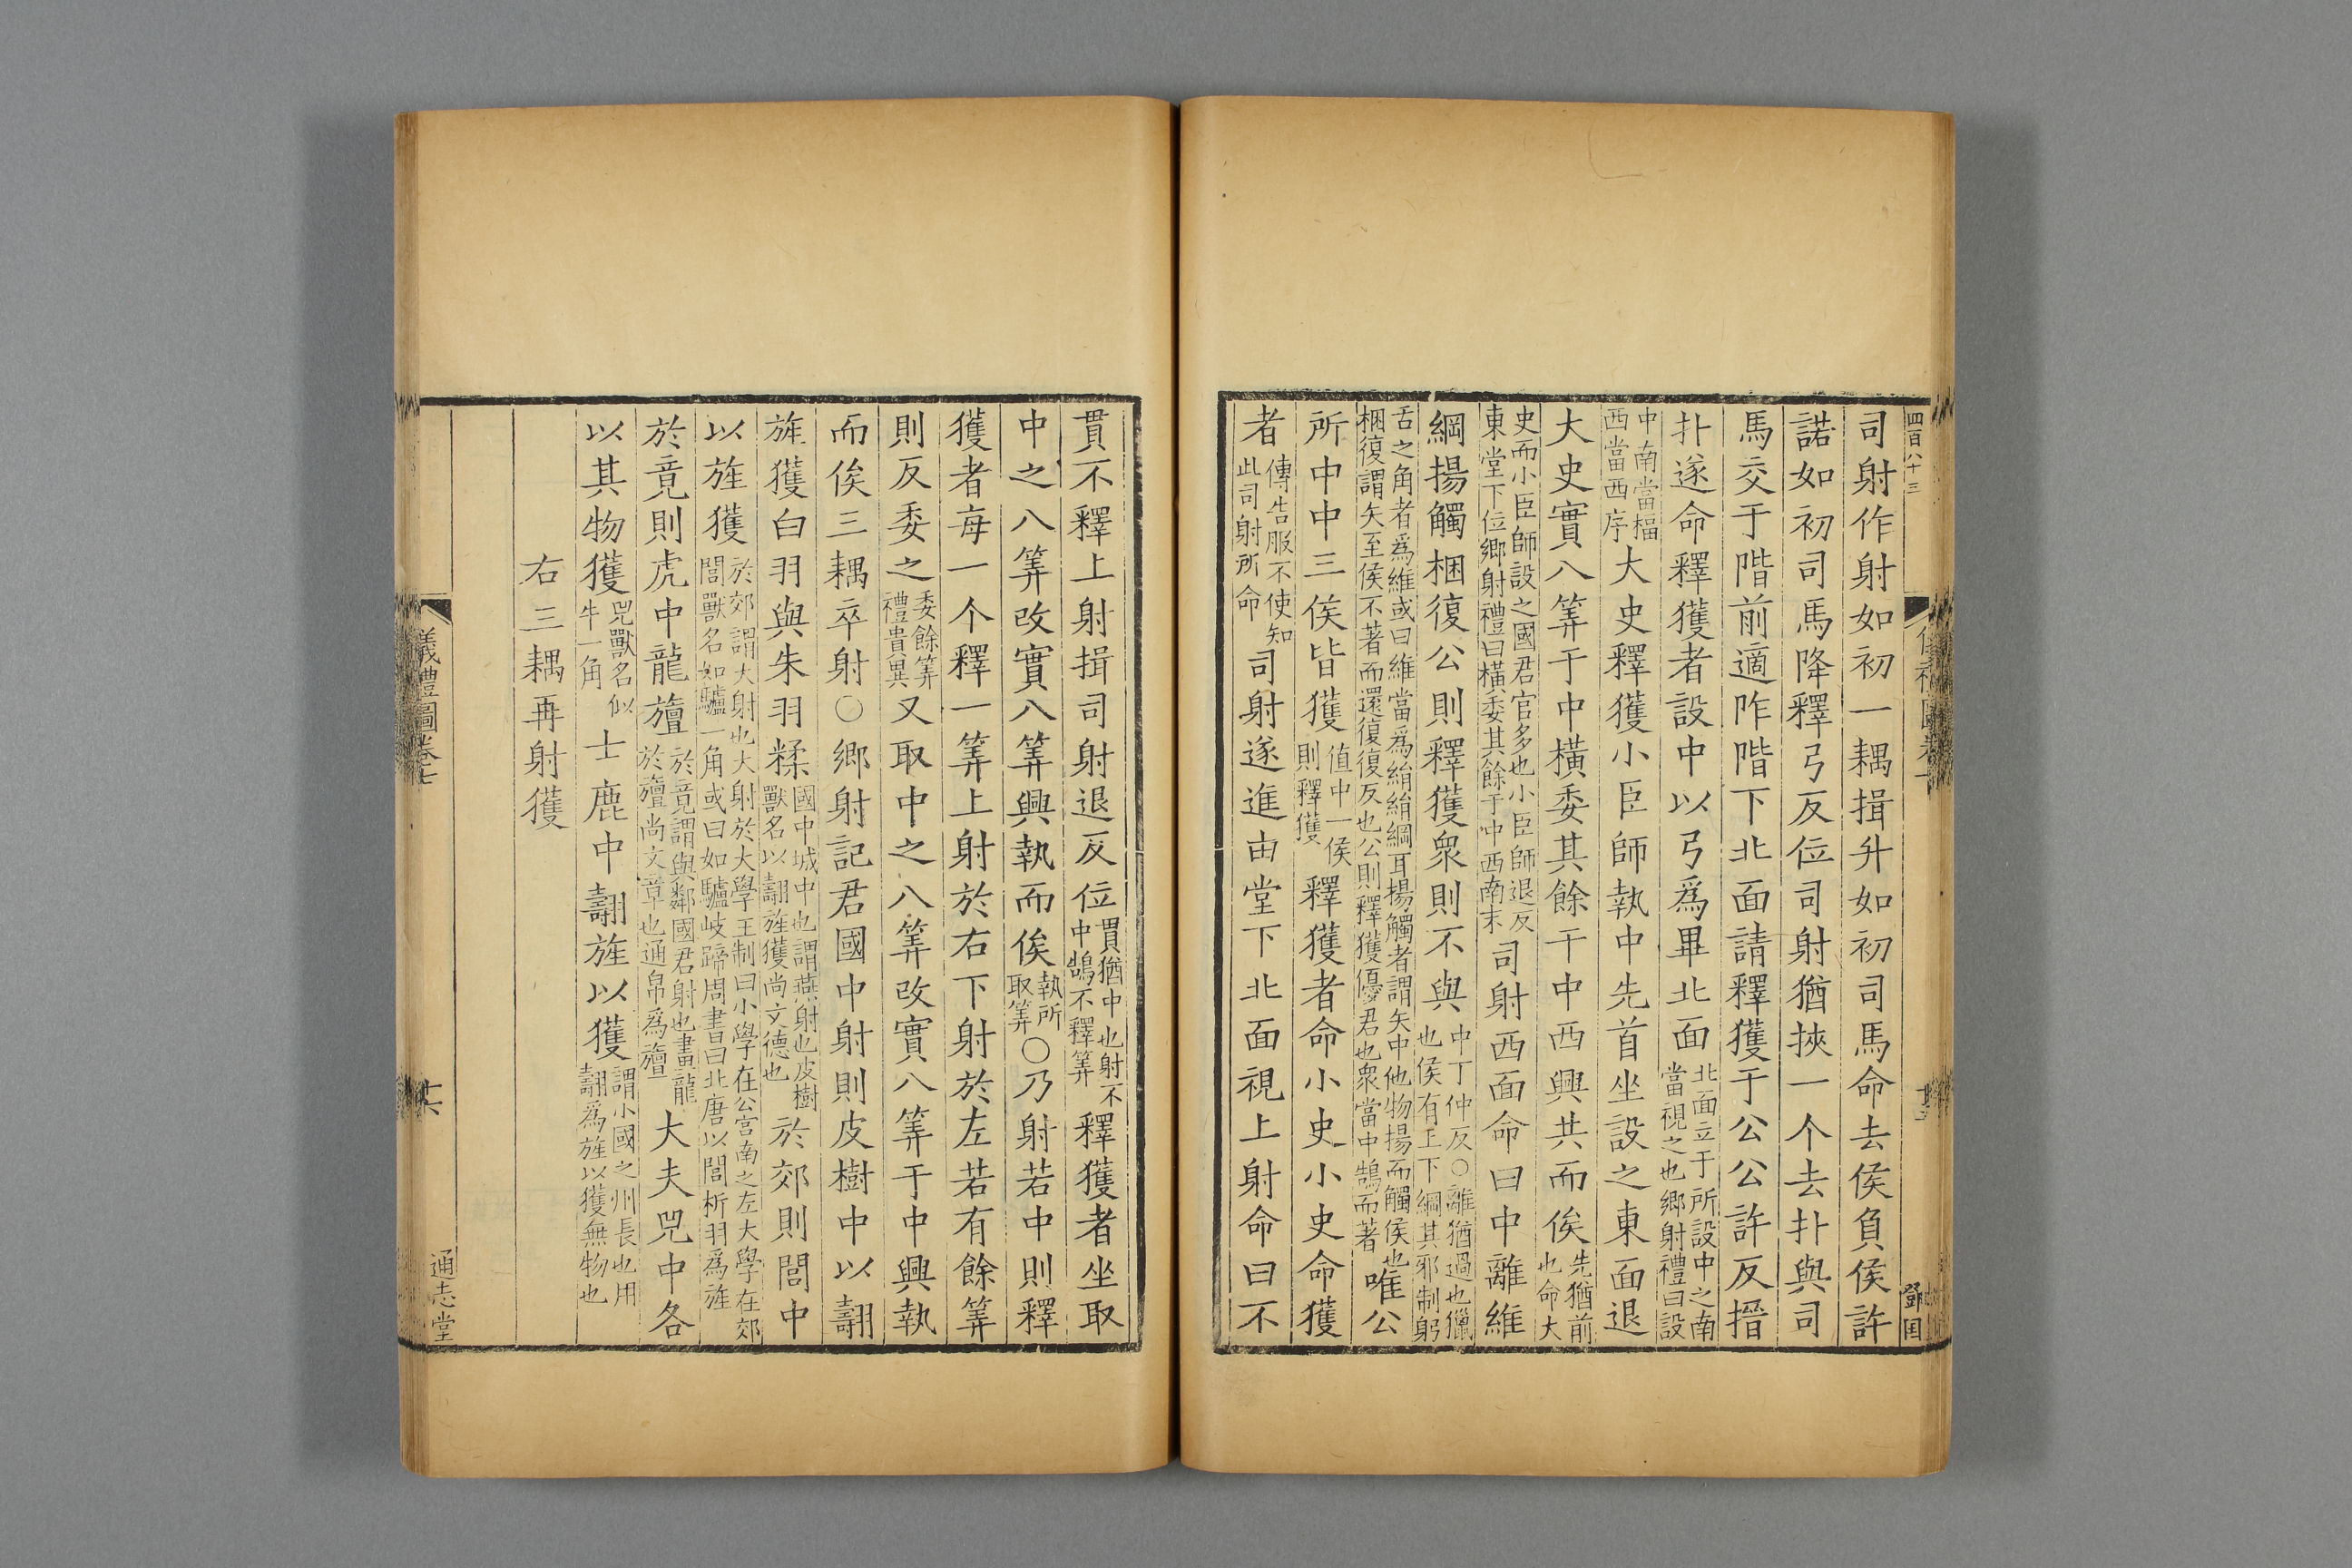 四百八十三
司射作射如初一耦揖升如初司馬命去侯負侯許
諾如初司馬降釋弓反位司射猶挾一个去扑與司
馬交于階前適阼階下北面請釋獲于公公許反搢
扑遂命釋獲者設中以弓爲畢北面北面立于所設中之南當視之也鄉射禮曰設
中南當楅西當西序大史釋獲小臣師執中先首坐設之東面退
大史實八筭于中橫委其餘于中西興共而俟先猶前也命大
史而小臣師設之國君官多也小臣師退反東堂下位鄉射禮曰橫委其餘于中西南末司射西面命曰中離維
綱揚觸梱復公則釋獲衆則不與中丁仲反○離猶過也獵也侯有上下綱其邪制躬
舌之角者爲維或曰維當爲絹絹綱耳揚觸者謂矢中他物揚而觸侯也梱復謂矢至侯不著而還復復反也公則釋獲優君也衆當中鵠而著唯公
所中中三侯皆獲值中一侯則釋獲釋獲者命小史小史命獲
者傳告服不使知此司射所命司射遂進由堂下北面視上射命曰不
鄧国
貫不釋上射揖司射退反位貫猶中也射不中鵠不釋筭釋獲者坐取
中之八筭改實八筭興執而俟執所取筭○乃射若中則釋
獲者每一个釋一筭上射於右下射於左若有餘筭
則反委之委餘筭禮貴異又取中之八筭改實八筭于中興執
而俟三耦卒射○鄉射記君國中射則皮樹中以翿
旌獲白羽與朱羽糅國中城中也謂燕射也皮樹獸名以翿旌獲尚文德也於郊則閭中
以旌獲於郊謂大射也大射於大學王制曰小學在公宮南之左大學在郊閭獸名如驢一角或曰如驢岐蹄周書曰北唐以閭析羽爲旌
於竟則虎中龍旜於竟謂與鄰國君射也畫龍於旜尚文章也通帛爲旜大夫兕中各
以其物獲兕獸名似牛一角士鹿中翿旌以獲謂小國之州長也用翿爲旌以獲無物也
右三耦再射獲
儀禮圖卷七
十六
通志堂